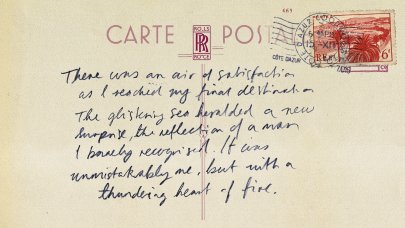 469
CARTE POSTAL
ROLLS
RR
ROYCE
CÔTE D'AZUR
6F
There was an air of satisfaction
as I reached my final destination
The glistening sea heralded a new
surprise, the reflection of a man
I barely recognised. It was
unmistakably me, but with a
thundering heart of fire.